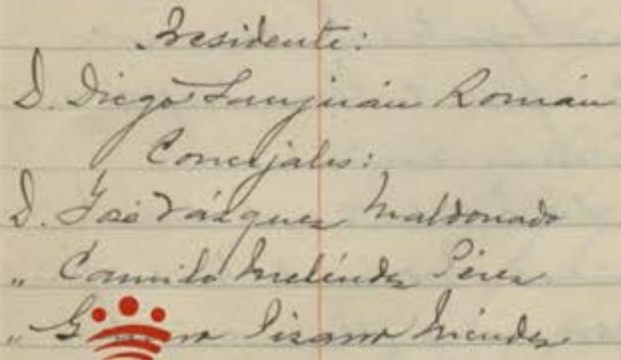 Presidente:
D. Diego Sanjuán Román
Concejales:
D. José Vázquez Maldonado
" Camilo Meléndez Pérez
" Pizarro Méndez